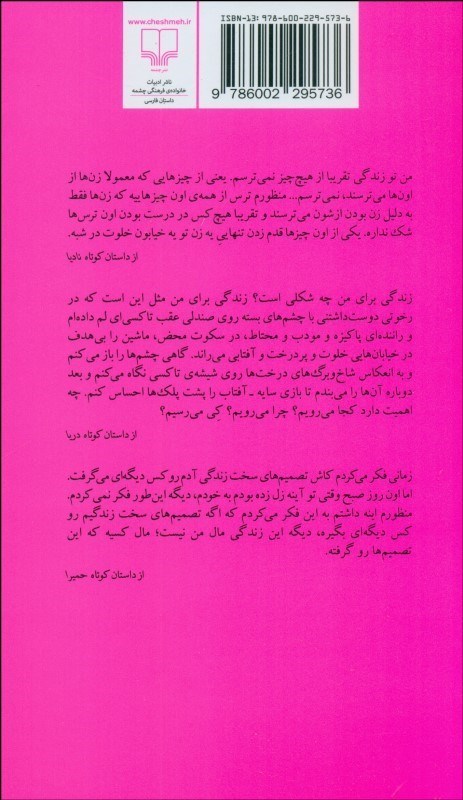 www.cheshmeh.ir
نشر چشمه
ناشر ادبیات
خانواده‌ی فرهنگی چشمه
داستان فارسی
ISBN-13: 978-600-229-573-6
9 786002 295736
من تو زندگی تقریبا از هیچ‌چیز نمی‌ترسم. یعنی از چیزهایی که معمولا زن‌ها از
اون‌ها می‌ترسند، نمی‌ترسم... منظورم ترس از همه‌ی اون چیزهاییه که زن‌ها فقط
به دلیل زن بودن ازشون می‌ترسند و تقریبا هیچ‌کس در درست بودن اون ترس‌ها
شک نداره. یکی از اون چیزها قدم زدن تنهایی یه زن تو یه خیابون خلوت در شبه.
از داستان کوتاه نادیا
زندگی برای من چه شکلی است؟ زندگی برای من مثل این است که در
رخوتی دوست‌داشتنی با چشم‌های بسته روی صندلی عقب تاکسی‌ای لم داده‌ام
و راننده‌ای پاکیزه و مودب و محتاط، در سکوت محض، ماشین را بی‌هدف
در خیابان‌هایی خلوت و پردرخت و آفتابی می‌راند. گاهی چشم‌ها را باز می‌کنم
و به انعکاس شاخ‌وبرگ‌های درخت‌ها روی شیشه‌ی تاکسی نگاه می‌کنم و بعد
دوباره آن‌ها را می‌بندم تا بازی سایه ـ آفتاب را پشت پلک‌ها احساس کنم. چه
اهمیت دارد کجا می‌رویم؟ چرا می‌رویم؟ کِی می‌رسیم؟
از داستان کوتاه دریا
زمانی فکر می‌کردم کاش تصمیم‌های سخت زندگی آدم رو کس دیگه‌ای می‌گرفت.
اما اون روز صبح وقتی تو آینه زل زده بودم به خودم، دیگه این‌طور فکر نمی‌کردم.
منظورم اینه داشتم به این فکر می‌کردم که اگه تصمیم‌های سخت زندگیم رو
کس دیگه‌ای بگیره، دیگه این زندگی مال من نیست؛ مال کسیه که این
تصمیم‌ها رو گرفته.
از داستان کوتاه حمیرا